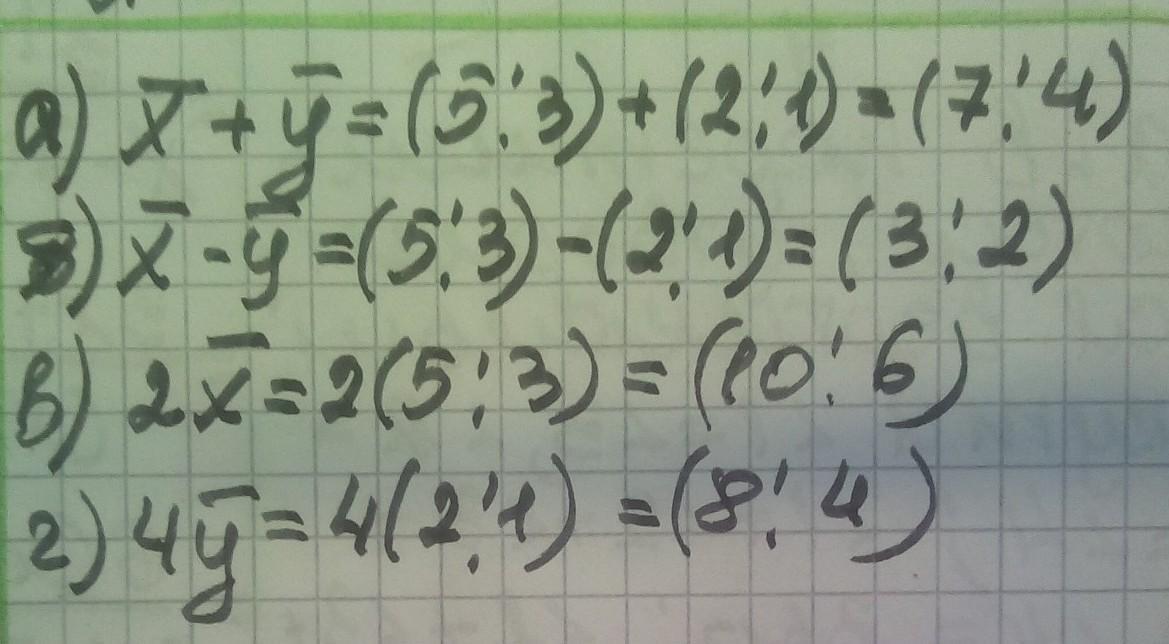 а) x̅ + y̅ = (5; 3) + (2; 1) = (7; 4)
б) x̅ - y̅ = (5; 3) - (2; 1) = (3; 2)
в) 2x̅ = 2(5; 3) = (10; 6)
г) 4y̅ = 4(2; 1) = (8; 4)